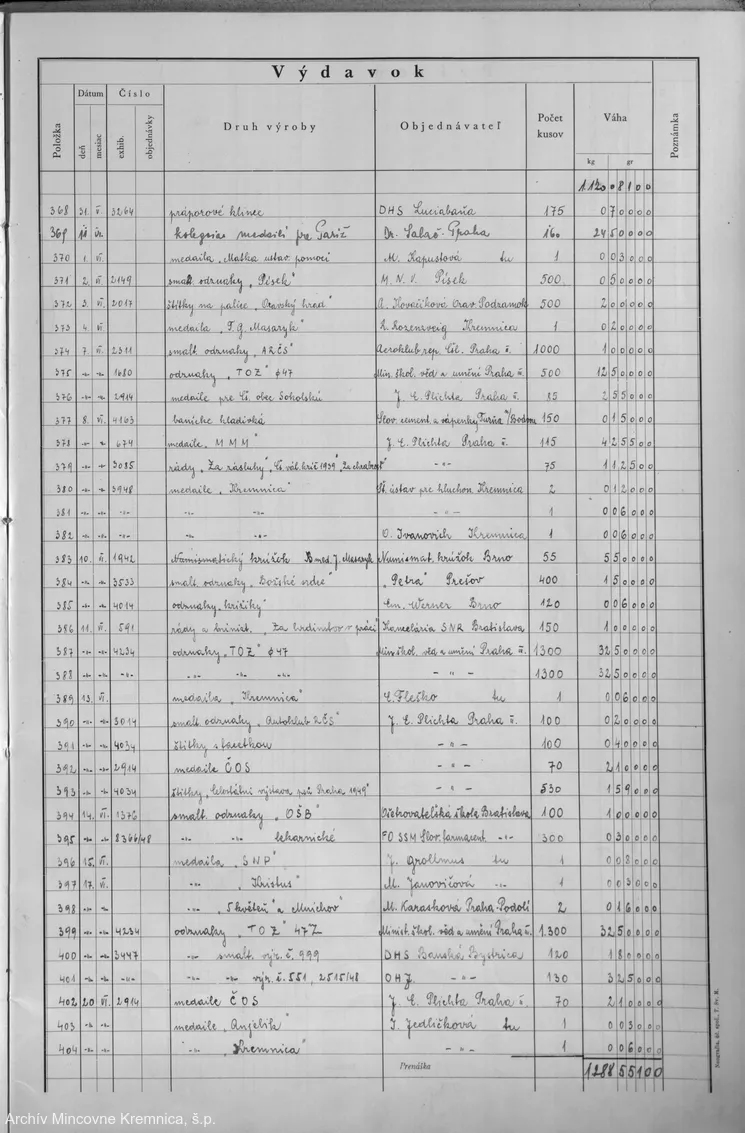 Výdavok
Položka Dátum Číslo Druh výroby Objednávateľ Počet kusov Váha Poznámka
deň mesiac exhib. objednávky kg gr
1120 08100
368 31. V. 3264 práporové klince DHS Luciabaňa 175 070000
369 kolegcia medailí pre Paríž Dr. Salač-Praha 160 2450000
370 1. VI. medaila „Matka ústav. pomoci M. Kapustová tu 1 003000
371 2. VI. 2149 smalt. odznaky „Písek" M.N.V. Písek 500 050000
372 3. VI. 2017 štítky na palice „Oravský hrad" A. Kovačiková Orav. Podzamok 500 200000
373 4. VI medaila „T.G. Masaryk" L. Rosenzveig Kremnica 1 020000
374 7. VI. 2311 smalt. odznaky „ARČS" Aeroklub rep. Čsl. Praha II. 1000 100000
375 -"- -"- 1680 odznaky „TOZ" φ47 Min. škol. věd a umění Praha II. 500 1250000
376 -"- -"- 2914 medaile pre Čs. obec Sokolskú J. E. Plichta Praha II. 85 255000
377 8. VI. 4163 banícke kladivká Slov. cement. a vápenky Turňa n/Bodvou 150 015000
378 -"- -"- 674 medaile „MMM" J. E. Plichta Praha II. 115 425500
379 -"- -"- 3085 rády „Za zásluhy", „Čs. vál. kríž 1939", „Za chrabrosť" -"- 75 112500
380 -"- -"- 3948 medaile „Kremnica" Št. ústav pre hluchon. Kremnica 2 012000
381 -"- -"- -"- -"- -"- 1 006000
382 -"- -"- -"- -"- O. Ivanovich Kremnica 1 006000
383 10. VI. 1942 Numismatický krúžok Bmed. J. Masaryk Numismat. krúžok Brno 55 550000
384 -"- -"- 3533 smalt. odznaky „Božské srdce" „Petra" Prešov 400 150000
385 -"- -"- 4014 odznaky „krížiky" Em. Werner Brno 120 006000
386 11. VI. 591 rády a miniat. „Za hrdinstvo v práci" Kancelária SNR Bratislava 150 100000
387 -"- -"- 4234 odznaky „TOZ" φ47 Min. škol. věd a umění Praha II. 1300 3250000
388 -"- -"- -"- -"- -"- -"- 1300 3250000
389 13. VI. medaila „Kremnica" E. Fleško tu 1 006000
390 -"- -"- 3014 smalt. odznaky „Autoklub RČS" J. E. Plichta Praha II. 100 020000
391 -"- -"- 4034 štítky s facetkou -"- 100 040000
392 -"- -"- 2914 medaile ČOS -"- 70 210000
393 -"- -"- 4034 štítky „Celostátní výstava psů Praha 1949" -"- 530 159000
394 14. VI. 1376 smalt. odznaky „OŠB" Ošetrovateľská škola Bratislava 100 100000
395 -"- -"- 8366/48 -"- -"- lekárnické FO SSM Slov. farmaceut. -"- 300 030000
396 15. VI. medaila „SNP" J. Grollmus tu 1 002000
397 17. VI. -"- „Kristus" M. Janovičová -"- 1 003000
398 -"- -"- -"- „5 květen" a Mnichov" M. Karasková Praha-Podolí 2 016000
399 -"- -"- 4234 odznaky „TOZ" 47Z Minist. škol. věd a umění Praha II. 1.300 3250000
400 -"- -"- 3447 -"- smalt. výr. č. 999 DHS Banská Bystrica 120 180000
401 -"- -"- -"- -"- -"- výr. č. 551, 2515/48 OHZ -"- 130 325000
402 20 VI. 2914 medaile ČOS J. E. Plichta Praha II. 70 210000
403 -"- -"- medaile „Anjelik" I. Jedličková tu 1 003000
404 -"- -"- -"- „Kremnica" -"- 1 006000
Prenáška 1288 55100
Archív Mincovne Kremnica, š.p.